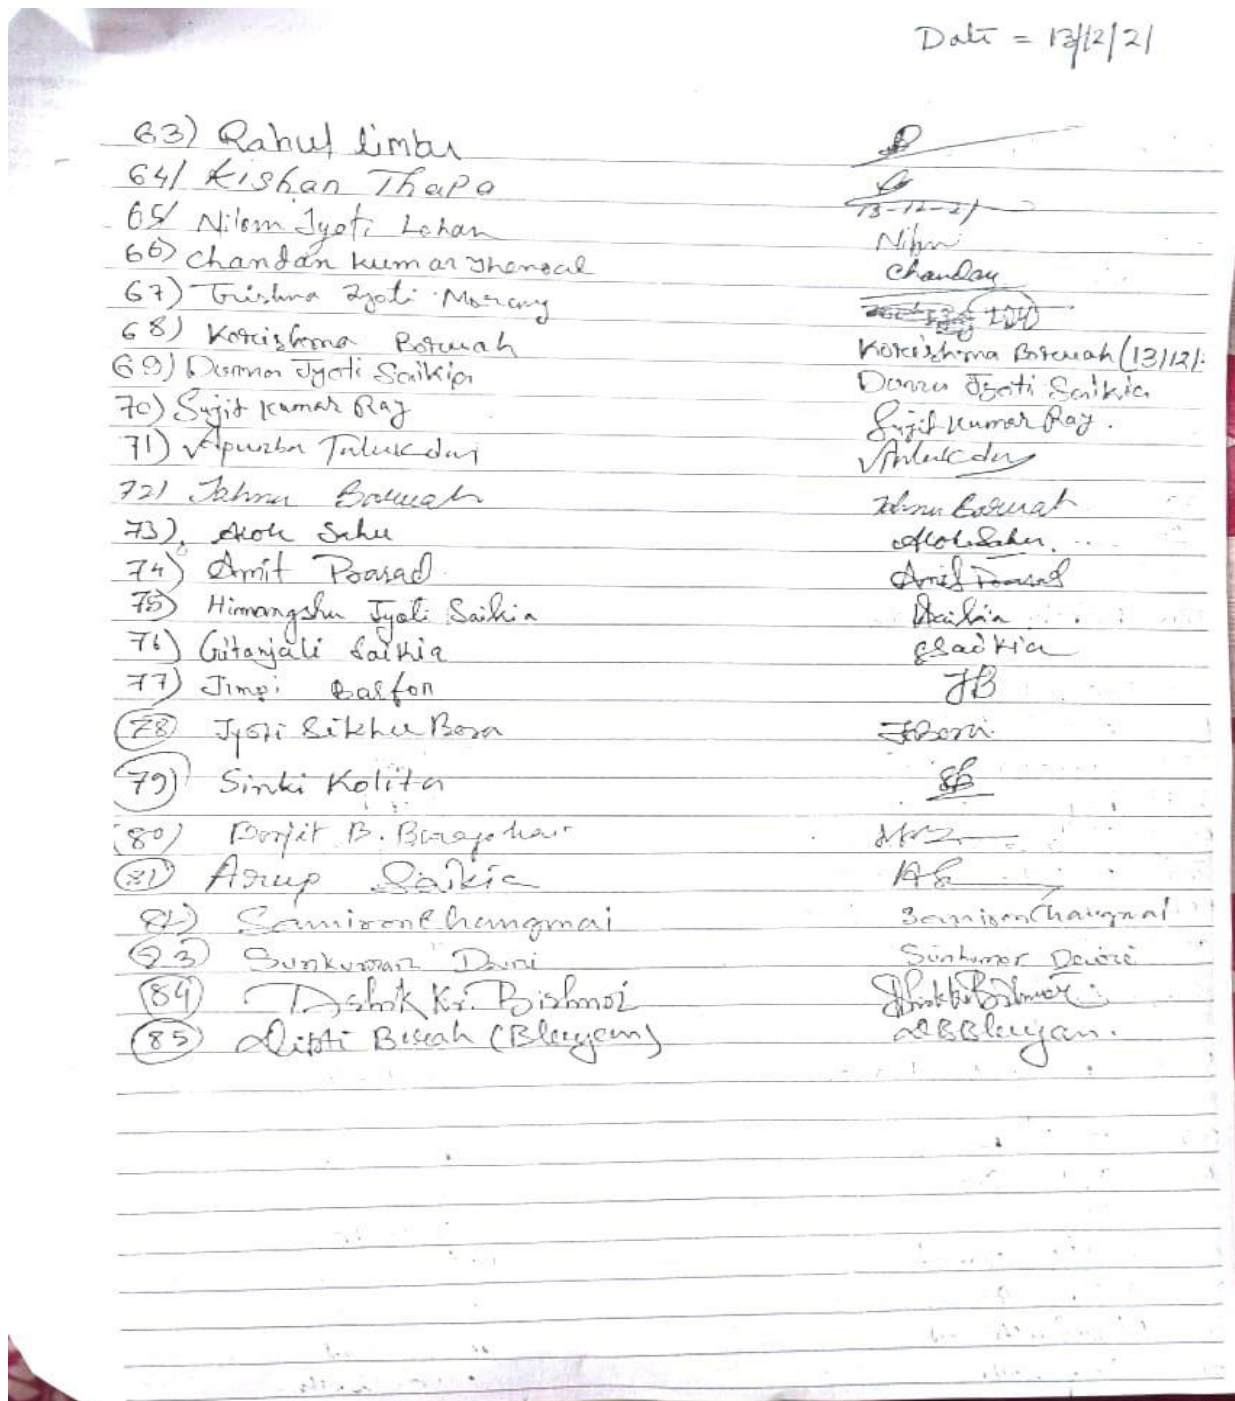 Date = 13/12/21
63) Rahul Limbu
64/ Kishan Thapa
13-12-21
65/ Nilom Jyoti Lohan
66) Chandan Kumar Chandan
67) Trishna Jyoti Morang
68) Korcishma Borcuah Korcishma Borcuah (13/12/.
69) Jyoti Saikia Jyoti Saikia
70) Sujit Kumar Ray Sujit Kumar Ray.
71) Apurba Talukdar Talukdar
72) Jahnu Boruah Jahnu Boruah
73). Alok Sahu Alok Sahu.
74) Amit Prasad Amit Prasad
75) Himangshu Jyoti Saikia Saikia
76) Gitanjali Saikia GSaikia
77) Jimpi Basfon JB
78 Jyoti Sikha Bora JBora.
79) Sinki Kolita
80) Borjit B.
81) Arup Saikia AS
82) Samiron Changmai Samiron Changmai
83) Sunkumar Deori Sunkumar
84) Ashok Kr. Bishnoi
85) Dipti Buah (Bhuyan) DBBhuyan.